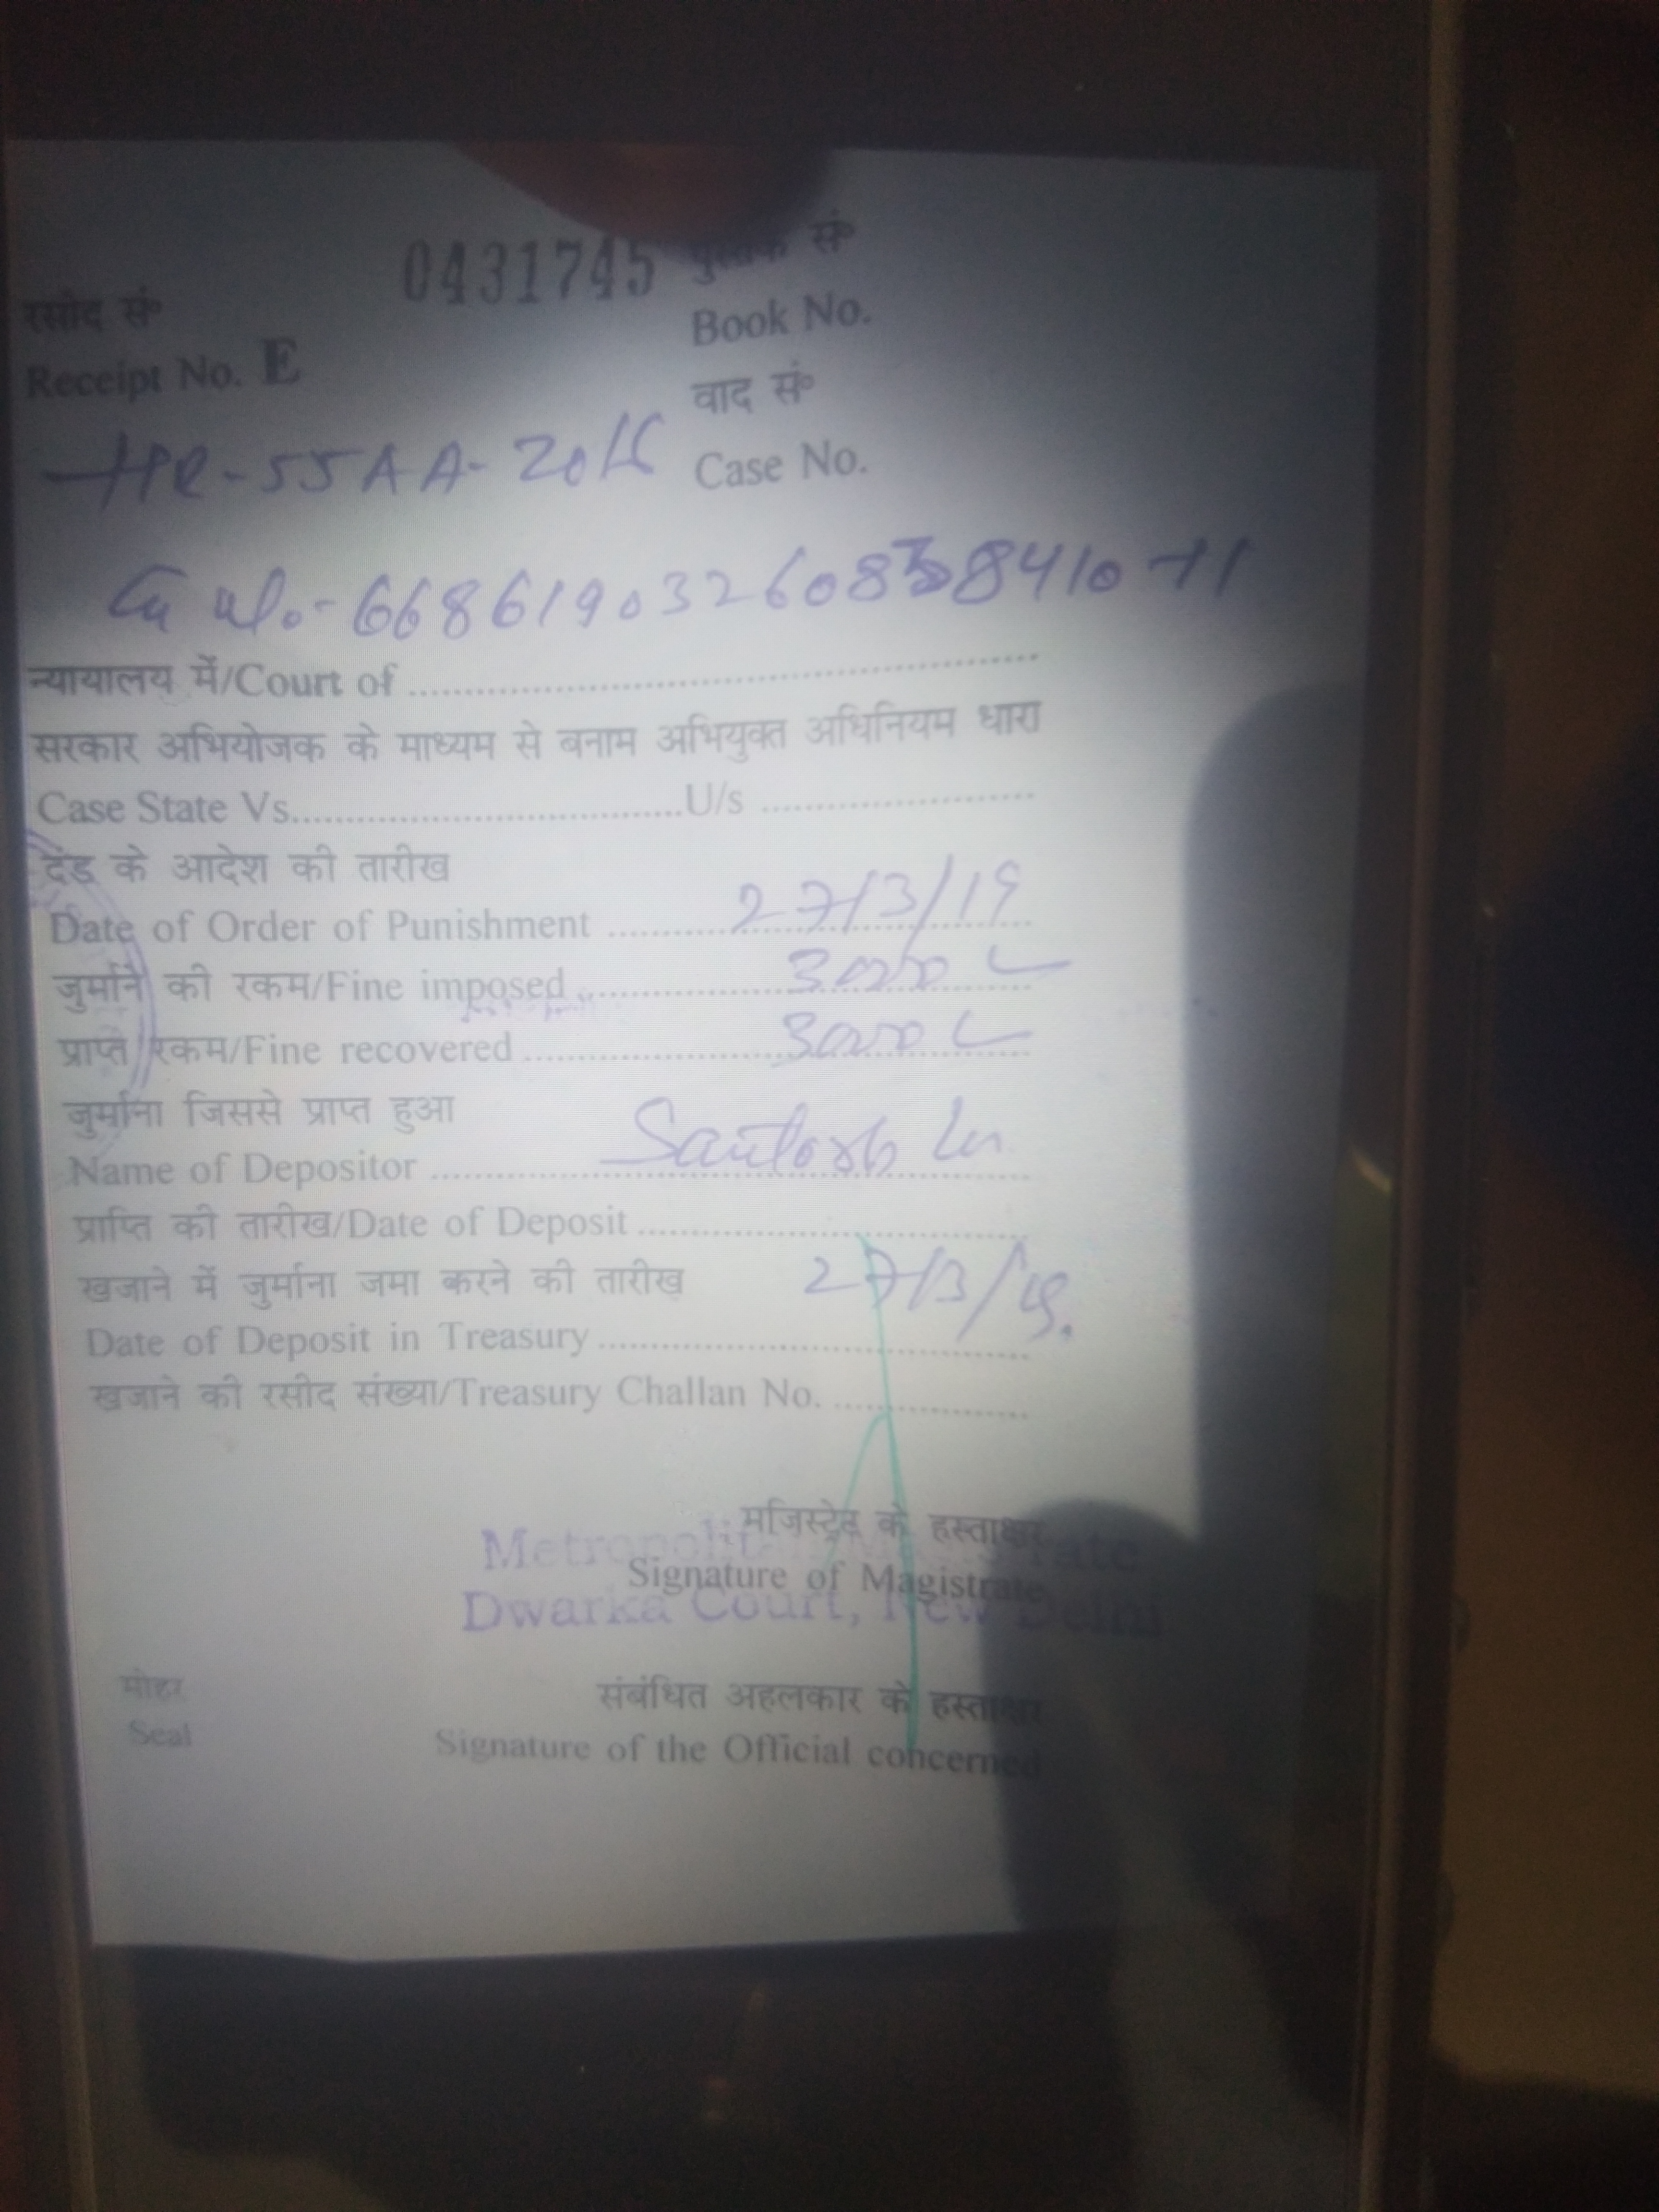 0431745 पुस्तक सं॰
रसीद सं॰
Book No.
Receipt No. E
वाद सं॰
HR-55AA-2016 Case No.
No.-
न्यायालय में/Court of
सरकार अभियोजक के माध्यम से बनाम अभियुक्त अधिनियम धारा
Case State Vs. U/s
दंड के आदेश की तारीख
Date of Order of Punishment 27/3/19
जुर्माने की रकम/Fine imposed 3000
प्राप्त रकम/Fine recovered 3000
जुर्माना जिससे प्राप्त हुआ
Name of Depositor Santosh
प्राप्ति की तारीख/Date of Deposit
खजाने में जुर्माना जमा करने की तारीख 27/3/19.
Date of Deposit in Treasury
खजाने की रसीद संख्या/Treasury Challan No.
मजिस्ट्रेट के हस्ताक्षर
Metropolitan Magistrate
Signature of Magistrate
Dwarka Court, New Delhi
मोहर
संबंधित अहलकार के हस्ताक्षर
Seal
Signature of the Official concerned